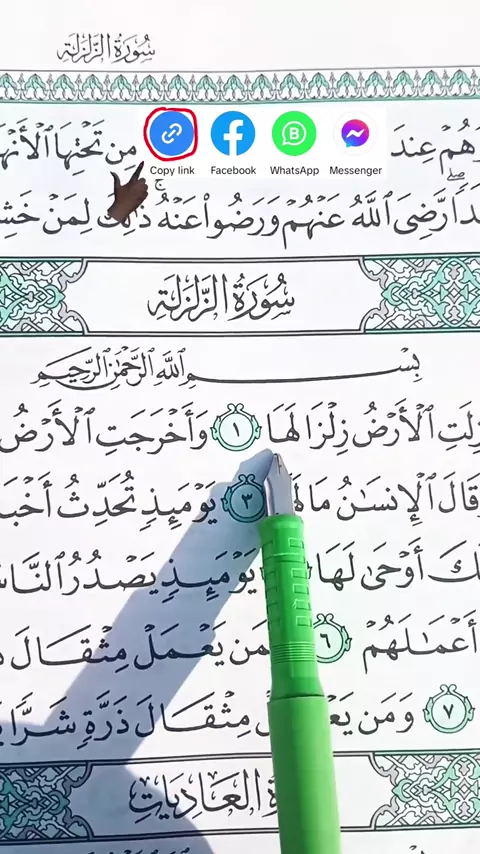 سُورَةُ الزَّلْزَلَةِ
عِندَ مِن تَحْتِهَا
Copy link Facebook WhatsApp Messenger
رَّضِىَ ٱللَّهُ عَنْهُمْ وَرَضُوا۟ عَنْهُ ذَٰلِكَ لِمَنْ
سُورَةُ الزَّلْزَلَةِ
بِسْمِ ٱللَّهِ ٱلرَّحْمَـٰنِ ٱلرَّحِيمِ
ٱلْأَرْضُ زِلْزَالَهَا ١ وَأَخْرَجَتِ ٱلْأَرْضُ
قَالَ ٱلْإِنسَـٰنُ مَا ٣ يَوْمَئِذٍ تُحَدِّثُ
أَوْحَىٰ لَهَا يَوْمَئِذٍ يَصْدُرُ
أَعْمَـٰلَهُمْ ٦ يَعْمَلْ مِثْقَالَ
٧ وَمَن مِثْقَالَ ذَرَّةٍ شَرًّا
العَادِيَاتِ